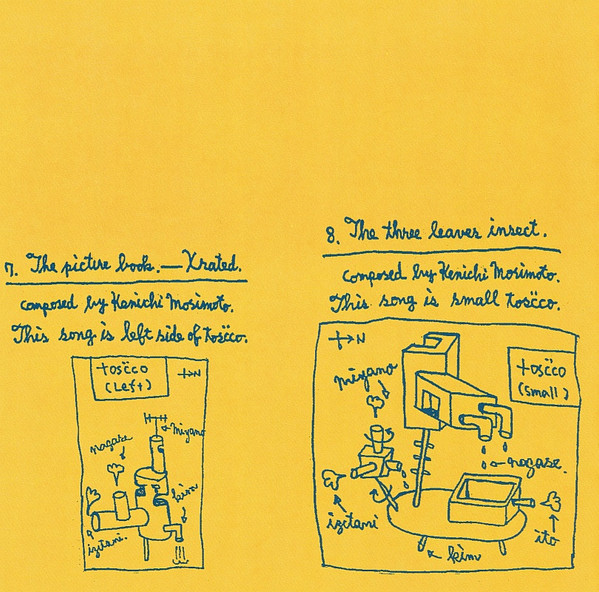 7. The picture book. — Xrated.
composed by Kenichi Morimoto.
This song is left side of toscco.
toscco
(Left)
→N
H-H
miyano
nagase
kim
izitani.
8. The three leaves insect.
composed by Kenichi Morimoto.
This song is small toscco.
→N
toscco
(small)
miyano
nagase.
izitani
ito
kim